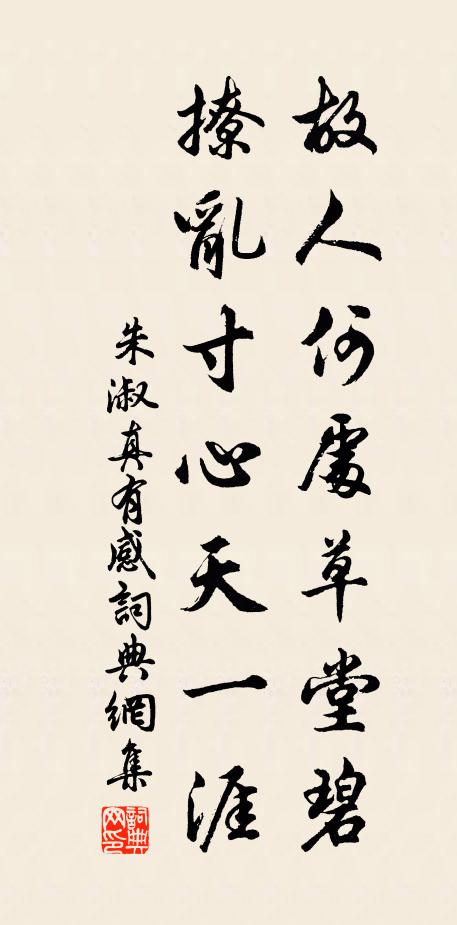 故人何處草堂碧
撩亂寸心天一涯
朱淑真有感詞典網集
詞典网印